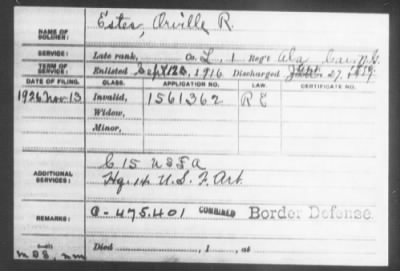 NAME OF SOLDIER: Estes, Orville R.
SERVICE: Late rank, Co. L, 1 Reg't Ala. Cav. N.G.
TERM OF SERVICE: Enlisted Sept 12, 1916 Discharged 27, 1919
DATE OF FILING. CLASS. APPLICATION NO. LAW. CERTIFICATE NO.
1926 Nov. 13 Invalid, 1561362 R E
Widow,
Minor,
C 15 U S F A
ADDITIONAL SERVICES: Hq. 14 U.S. F. Art.
REMARKS: C-475.401 COMBINED Border Defense.
Died , 1 , at